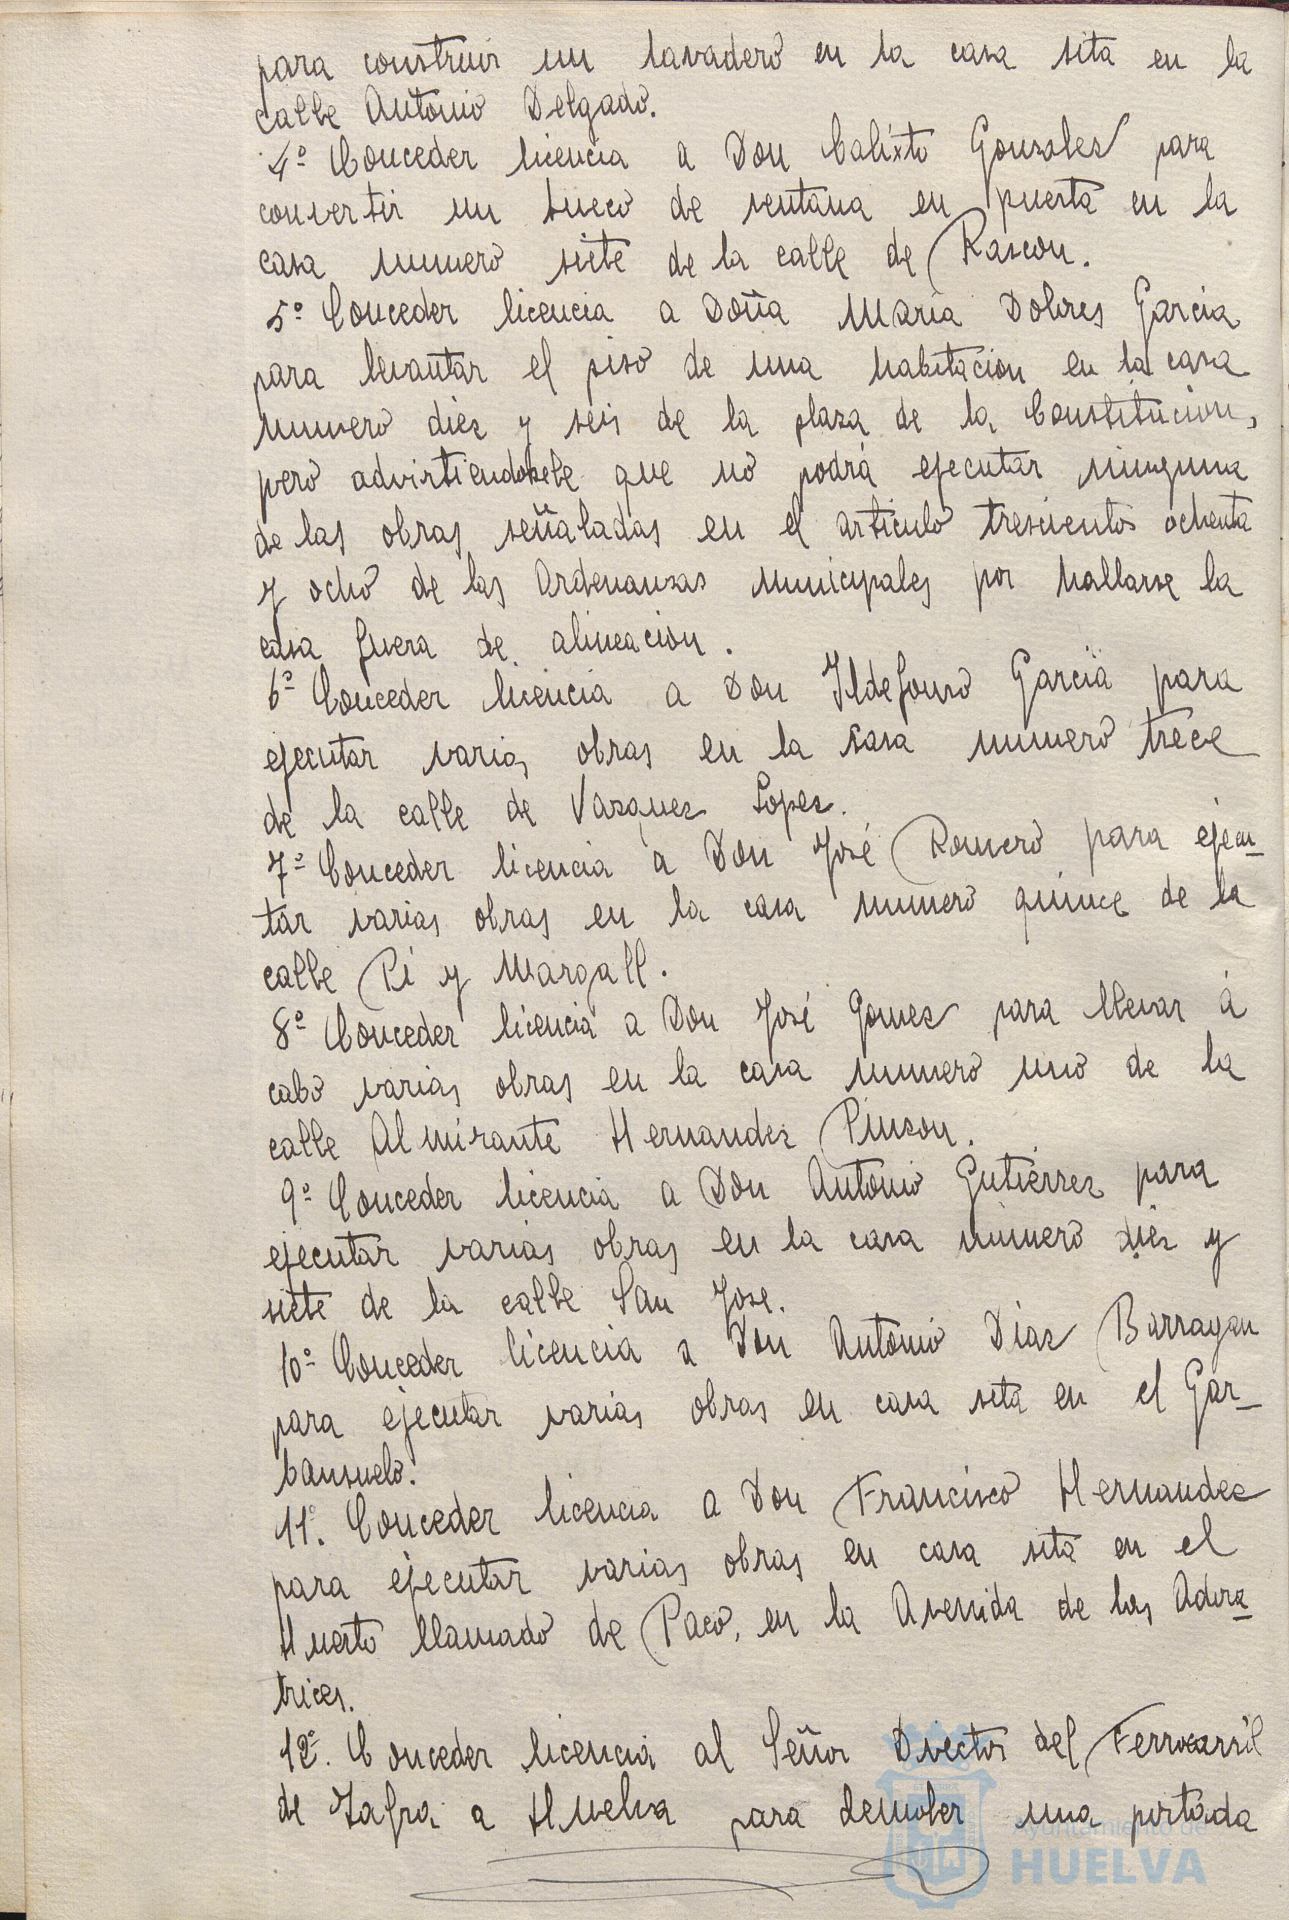 para construir un lavadero en la casa sita en la
calle Antonio Delgado.
4º Conceder licencia a Don Calixto Gonzalez para
convertir un hueco de ventana en puerta en la
casa numero siete de la calle de Rascon.
5º Conceder licencia a Doña María Dolores Garcia
para levantar el piso de una habitacion en la casa
numero diez y seis de la plaza de la Constitucion,
pero advirtiendosele que no podrá ejecutar ninguna
de las obras señaladas en el articulo trescientos ochenta
y ocho de las Ordenanzas municipales por hallarse la
casa fuera de alineacion.
6º Conceder licencia a Don Ildefonso García para
ejecutar varias obras en la casa numero trece
de la calle de Vazquez Lopez.
7º Conceder licencia a Don José Romero para ejecu-
tar varias obras en la casa numero quince de la
calle Pí y Margall.
8º Conceder licencia a Don José Gomez para llevar á
cabo varias obras en la casa numero uno de la
calle Almirante Hernandez Pinzon.
9º Conceder licencia a Don Antonio Gutiérrez para
ejecutar varias obras en la casa número diez y
siete de la calle San Jose.
10º Conceder licencia a Don Antonio Diaz Barragan
para ejecutar varias obras en casa sita en el Gar-
banzuelo.
11º. Conceder licencia a Don Francisco Hernandez
para ejecutar varias obras en casa sita en el
Huerto llamado de Paco, en la Avenida de las Adora-
trices.
12º. Conceder licencia al Señor Director del Ferrocarril
de Zafra a Huelva para demoler una portada
Ayuntamiento de
HUELVA